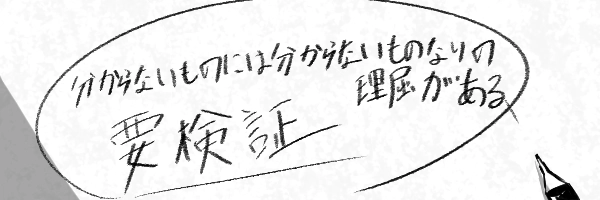 分からないものには分からないものなりの
理屈がある
要検証